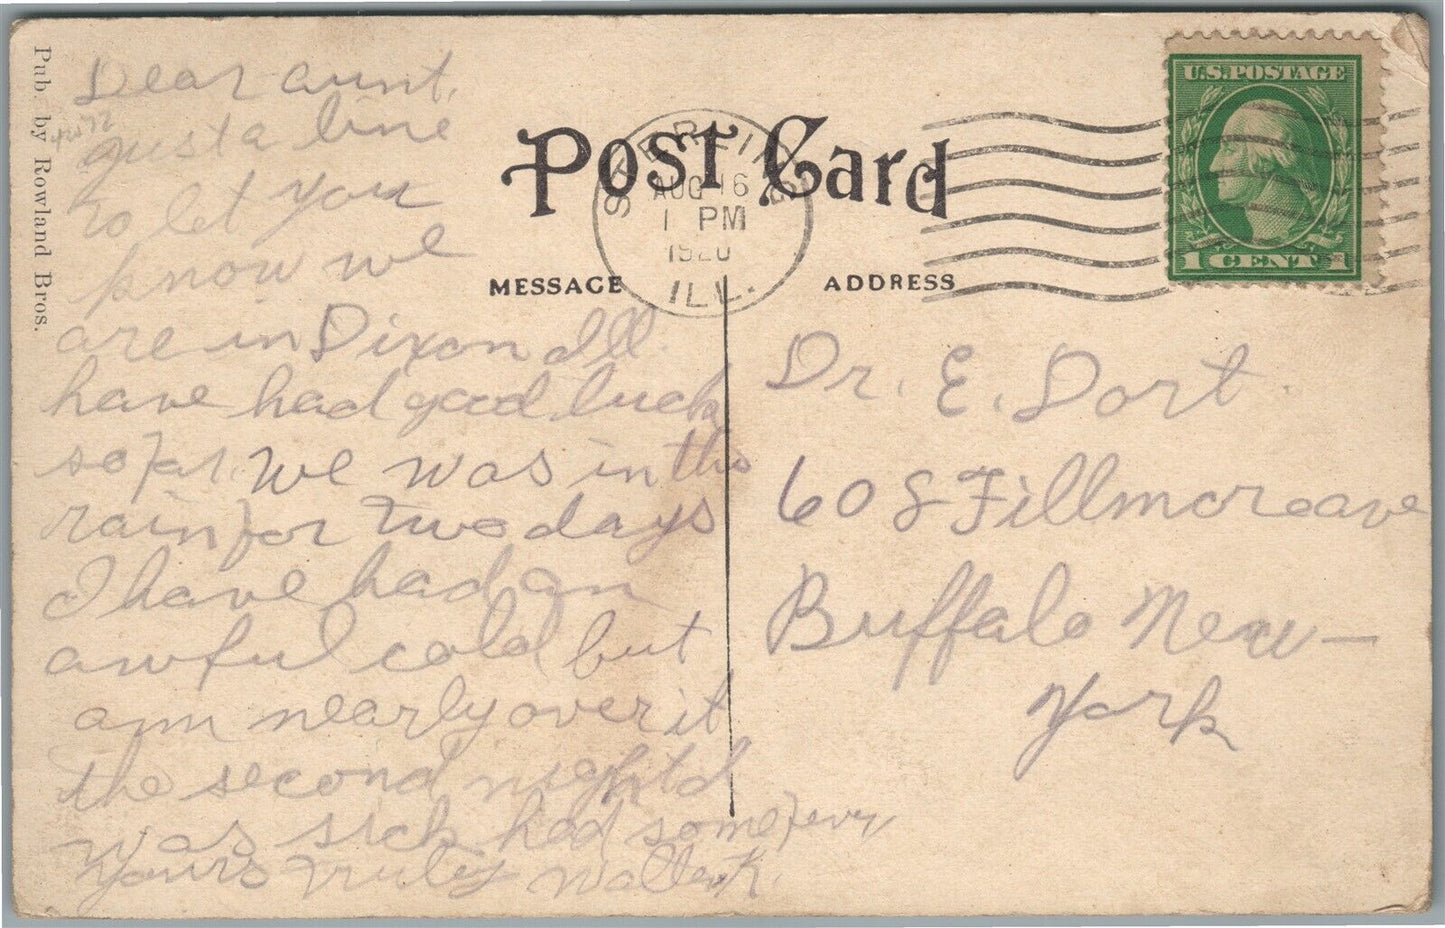 Pub. by Rowland Bros.
POST CARD
MESSAGE
ADDRESS
STERLING
AUG 16
1 PM
1920
ILL.
U.S. POSTAGE
1 CENT 1
Dear aunt.
gust a line
to let you
know we
are in Dixon Ill.
have had good luck
so far. we was in the
rain for two days
I have had an
awful cold but
am nearly over it
the second night I
was sick had some fever
yours truley
Dr. E. Dort.
608 Fillmore ave
Buffalo New –
York